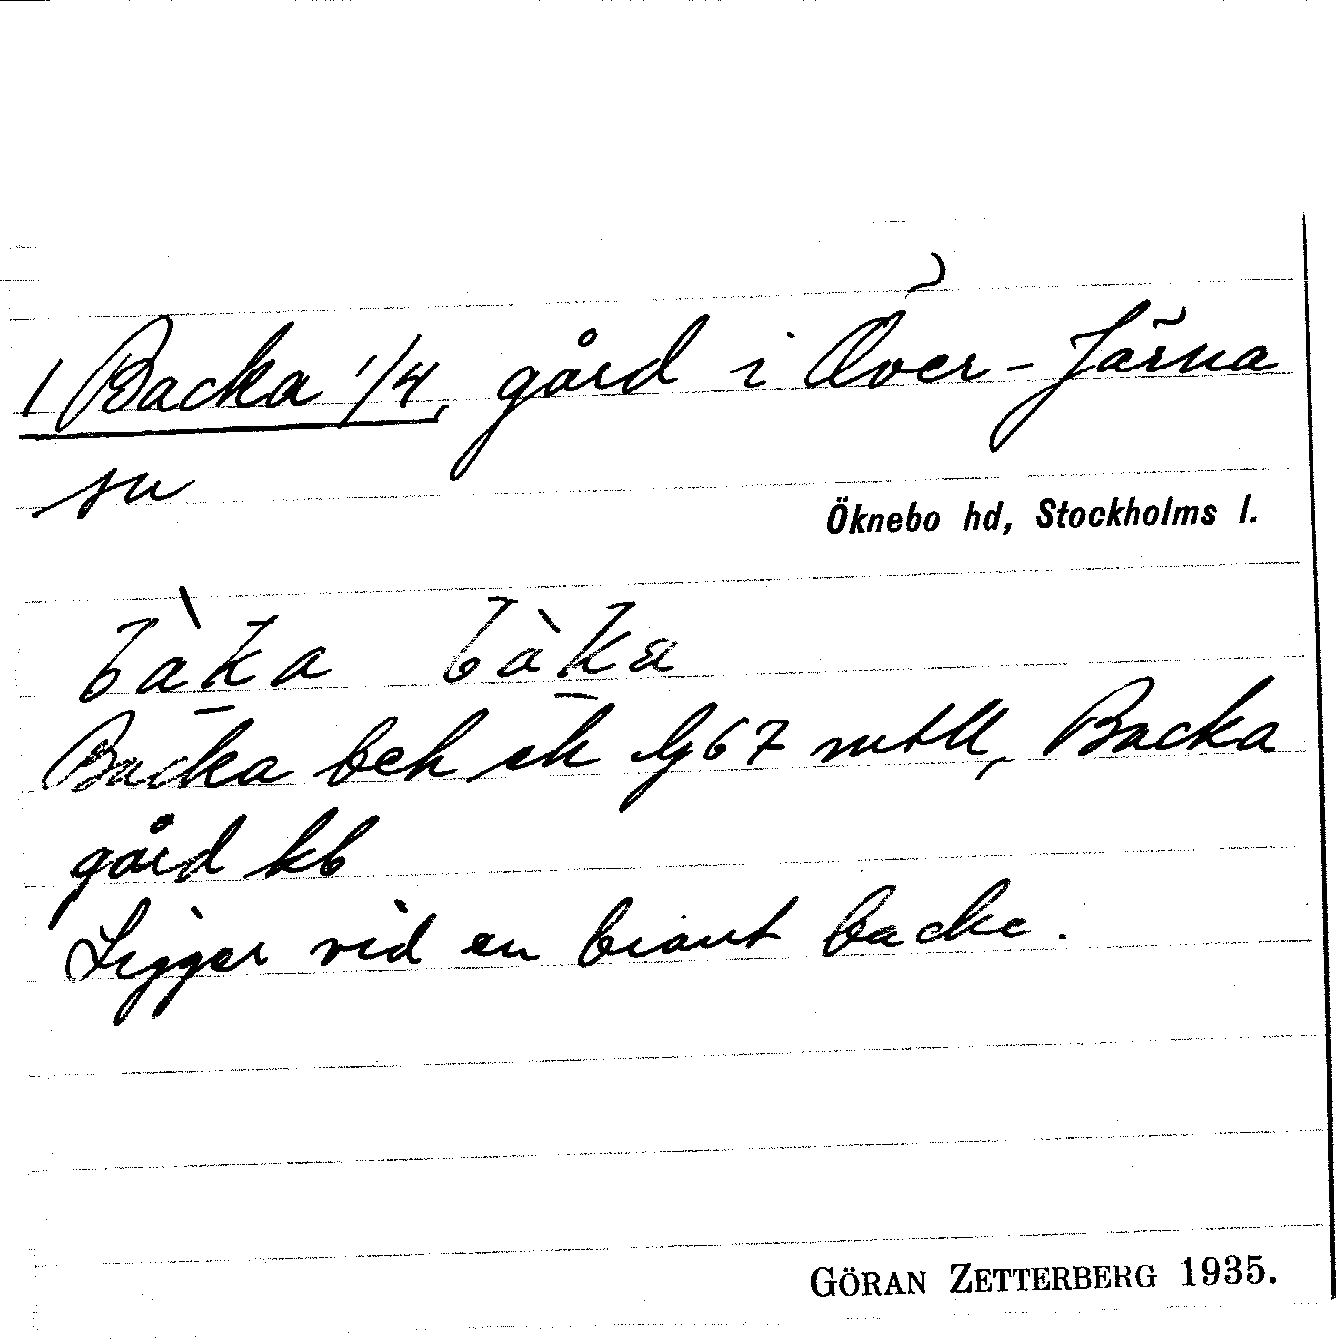 1 Backa 1/4, gård i Över-Järna
sn
Öknebo hd, Stockholms l.
bàka bàka
Backa beh ek lg 67 mtll, Backa
gård kb
Ligger vid en brant backe.
GÖRAN ZETTERBERG 1935.